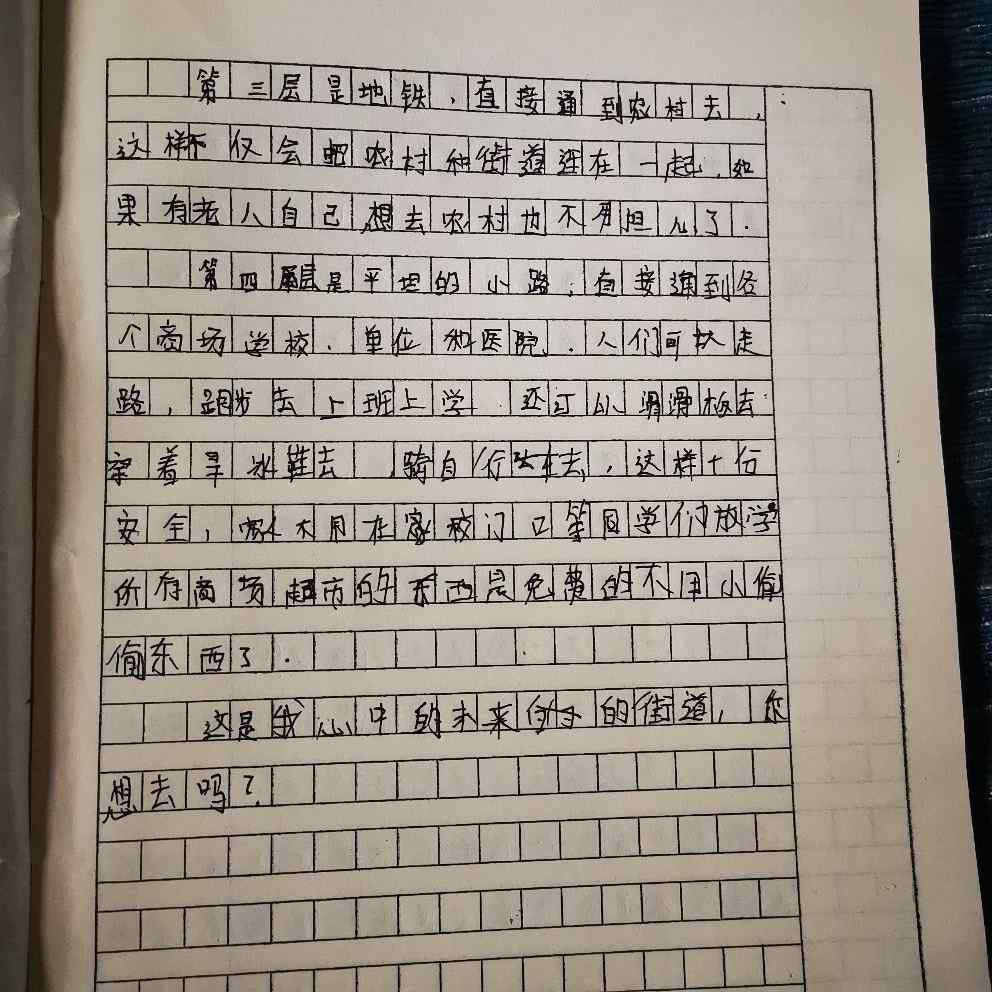 第三层是地铁，直接通到农村去，
这样不仅会把农村和街道连在一起，如
果有老人自己想去农村也不用担心了.
第四层是平坦的小路，直接通到各
个商场学校、单位和医院.人们可以走
路，跑步去上班上学 还可以滑滑板去
穿着旱冰鞋去，骑自行车去，这样十分
安全，家人不用在学校门口等同学们放学
所有商场超市的东西是免费的不用小偷
偷东西了.
这是我心中的未来的街道，你
想去吗？